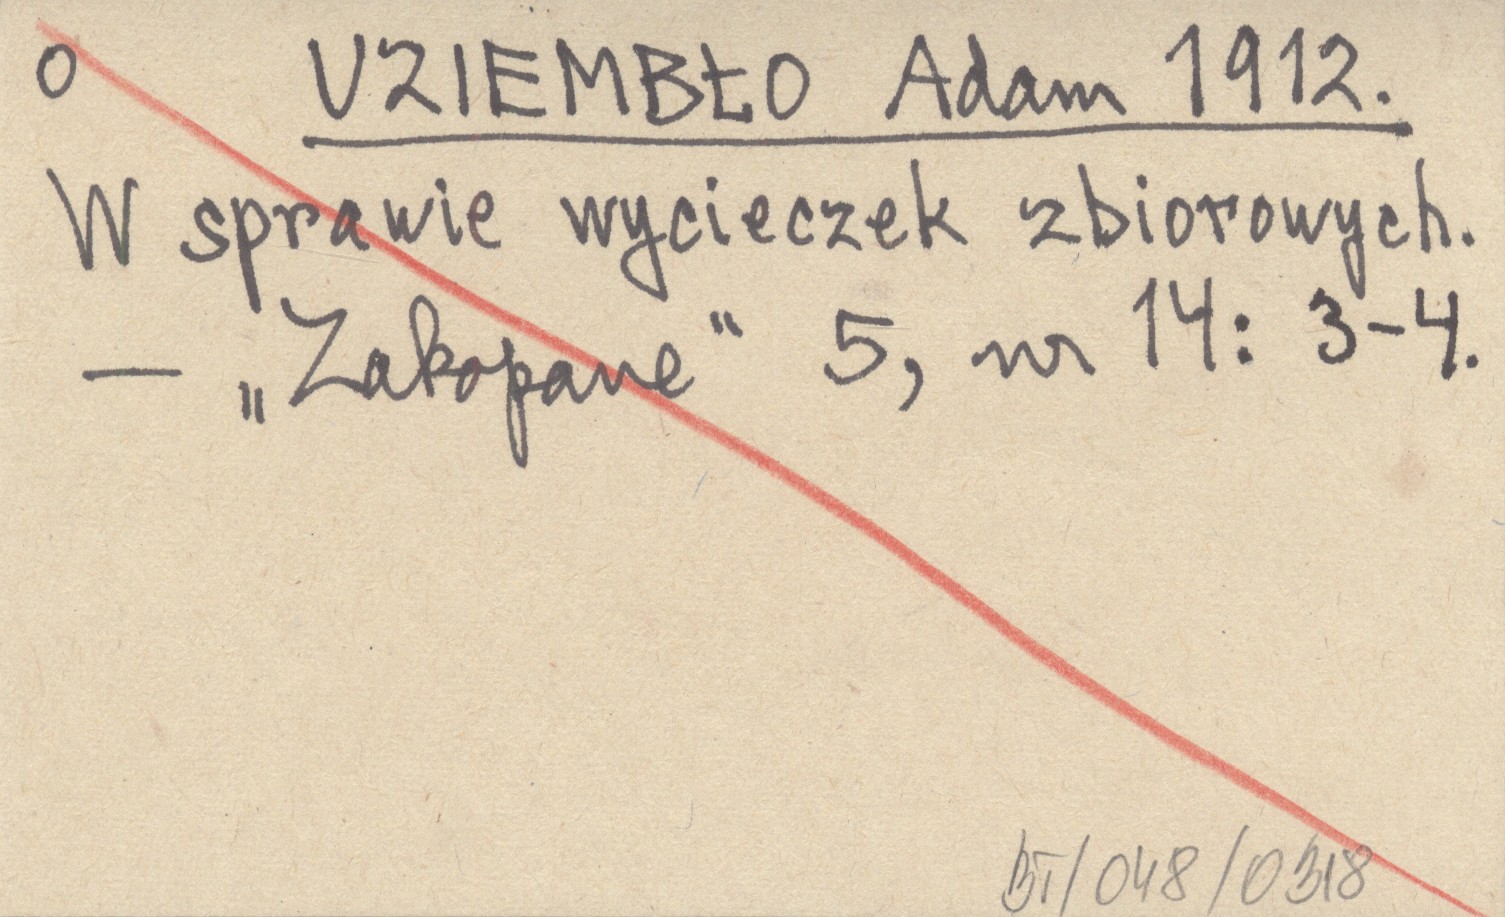 o UZIEMBŁO Adam 1912.
W sprawie wycieczek zbiorowych.
— „Zakopane" 5, nr 14: 3-4.
BT/048/0318